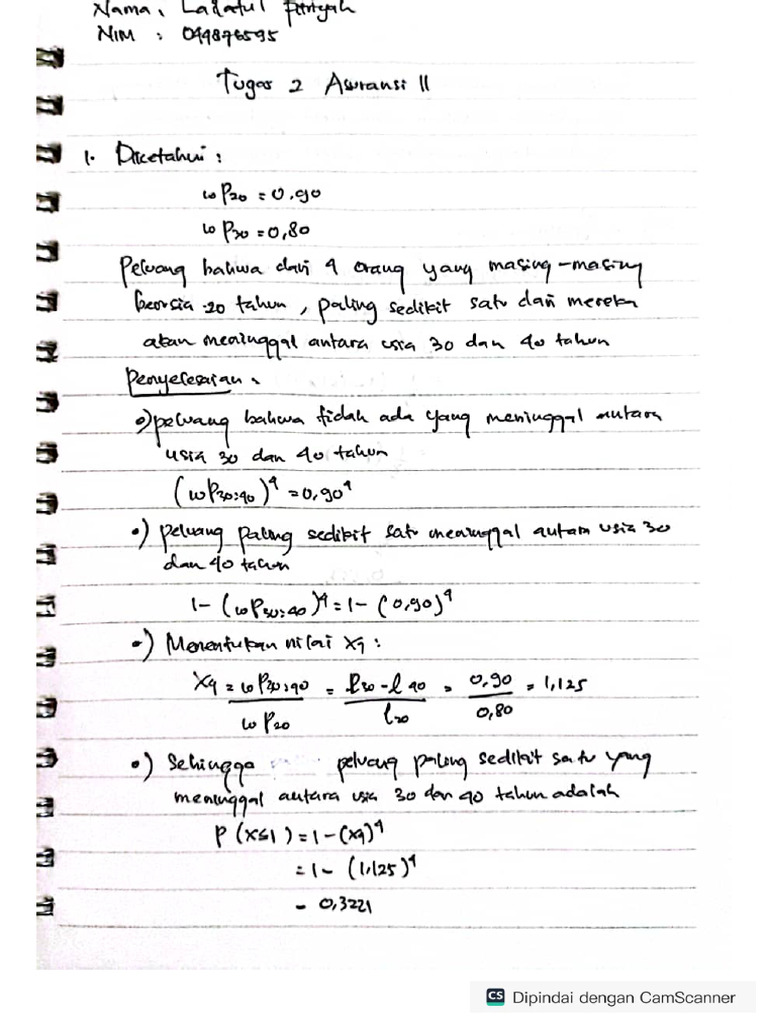 Nama : Lailatul Fitriyah
NIM : 049876595
Tugas 2 Asuransi II
1. Diketahui :
10 P20 = 0,90
10 P30 = 0,80
Peluang bahwa dari 4 orang yang masing-masing
berusia 20 tahun, paling sedikit satu dari mereka
akan meninggal antara usia 30 dan 40 tahun
Penyelesaian :
•) peluang bahwa tidak ada yang meninggal antara
usia 30 dan 40 tahun
(10P30:40)⁴ = 0,90⁴
•) peluang paling sedikit satu meninggal antara usia 30
dan 40 tahun
1 - (10P30:40)⁴ = 1 - (0,90)⁴
•) Menentukan nilai X9 :
X9 = 10P30:40 / 10P20 = l30 - l40 / l20 = 0,90 / 0,80 = 1,125
•) Sehingga peluang paling sedikit satu yang
meninggal antara usia 30 dan 40 tahun adalah
P (x≤1) = 1 - (x9)⁴
= 1 - (1,125)⁴
= 0,3221
CS Dipindai dengan CamScanner